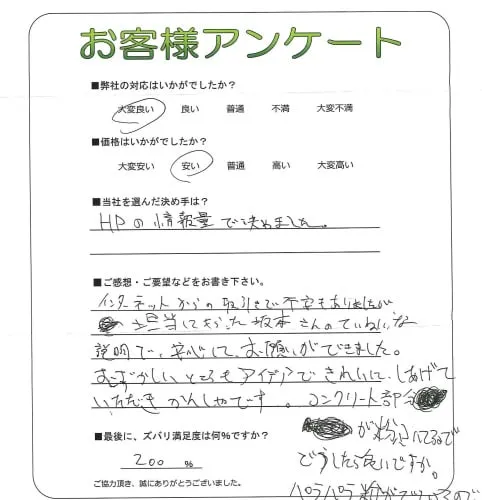 お客様アンケート
■弊社の対応はいかがでしたか?
大変良い 良い 普通 不満 大変不満
■価格はいかがでしたか?
大変安い 安い 普通 高い 大変高い
■当社を選んだ決め手は?
HPの情報量で決めました。
■ご感想・ご要望などをお書き下さい。
インターネットからの取引きで不安もありましたが
担当になった坂本さんのていねいな
説明で、安心して、お願いができました。
むずかしいところもアイデアできれいに、しあげて
いただきかんしゃです。コンクリート部分
が粉ふいてるので
■最後に、ズバリ満足度は何%ですか?
200 %
どうしたら良いですか。
ご協力頂き、誠にありがとうございました。
パラパラ粉が